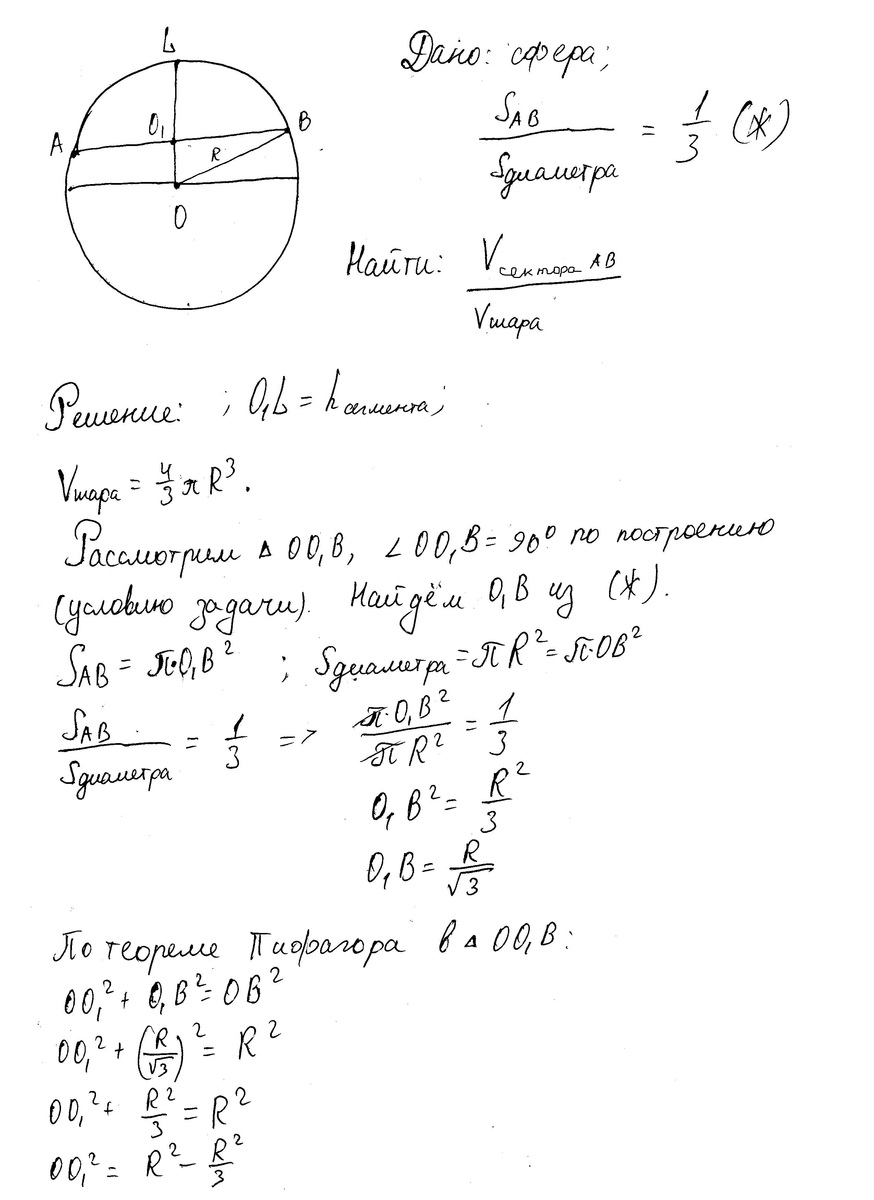 L
A
O₁
B
R
O
Дано: сфера;
S_AB / Sдиаметра = 1/3 (Ж)
Найти: V сектора AB / Vшара
Решение: ; O₁L = h сегмента;
Vшара = 4/3 πR³.
Рассмотрим Δ OO₁B, ∠OO₁B = 90° по построению
(условию задачи). Найдём O₁B из (Ж).
S_AB = π·O₁B² ; Sдиаметра = πR² = π·OB²
S_AB / Sдиаметра = 1/3 => π·O₁B² / πR² = 1/3
O₁B² = R²/3
O₁B = R/√3
По теореме Пифагора в Δ OO₁B:
OO₁² + O₁B² = OB²
OO₁² + (R/√3)² = R²
OO₁² + R²/3 = R²
OO₁² = R² − R²/3